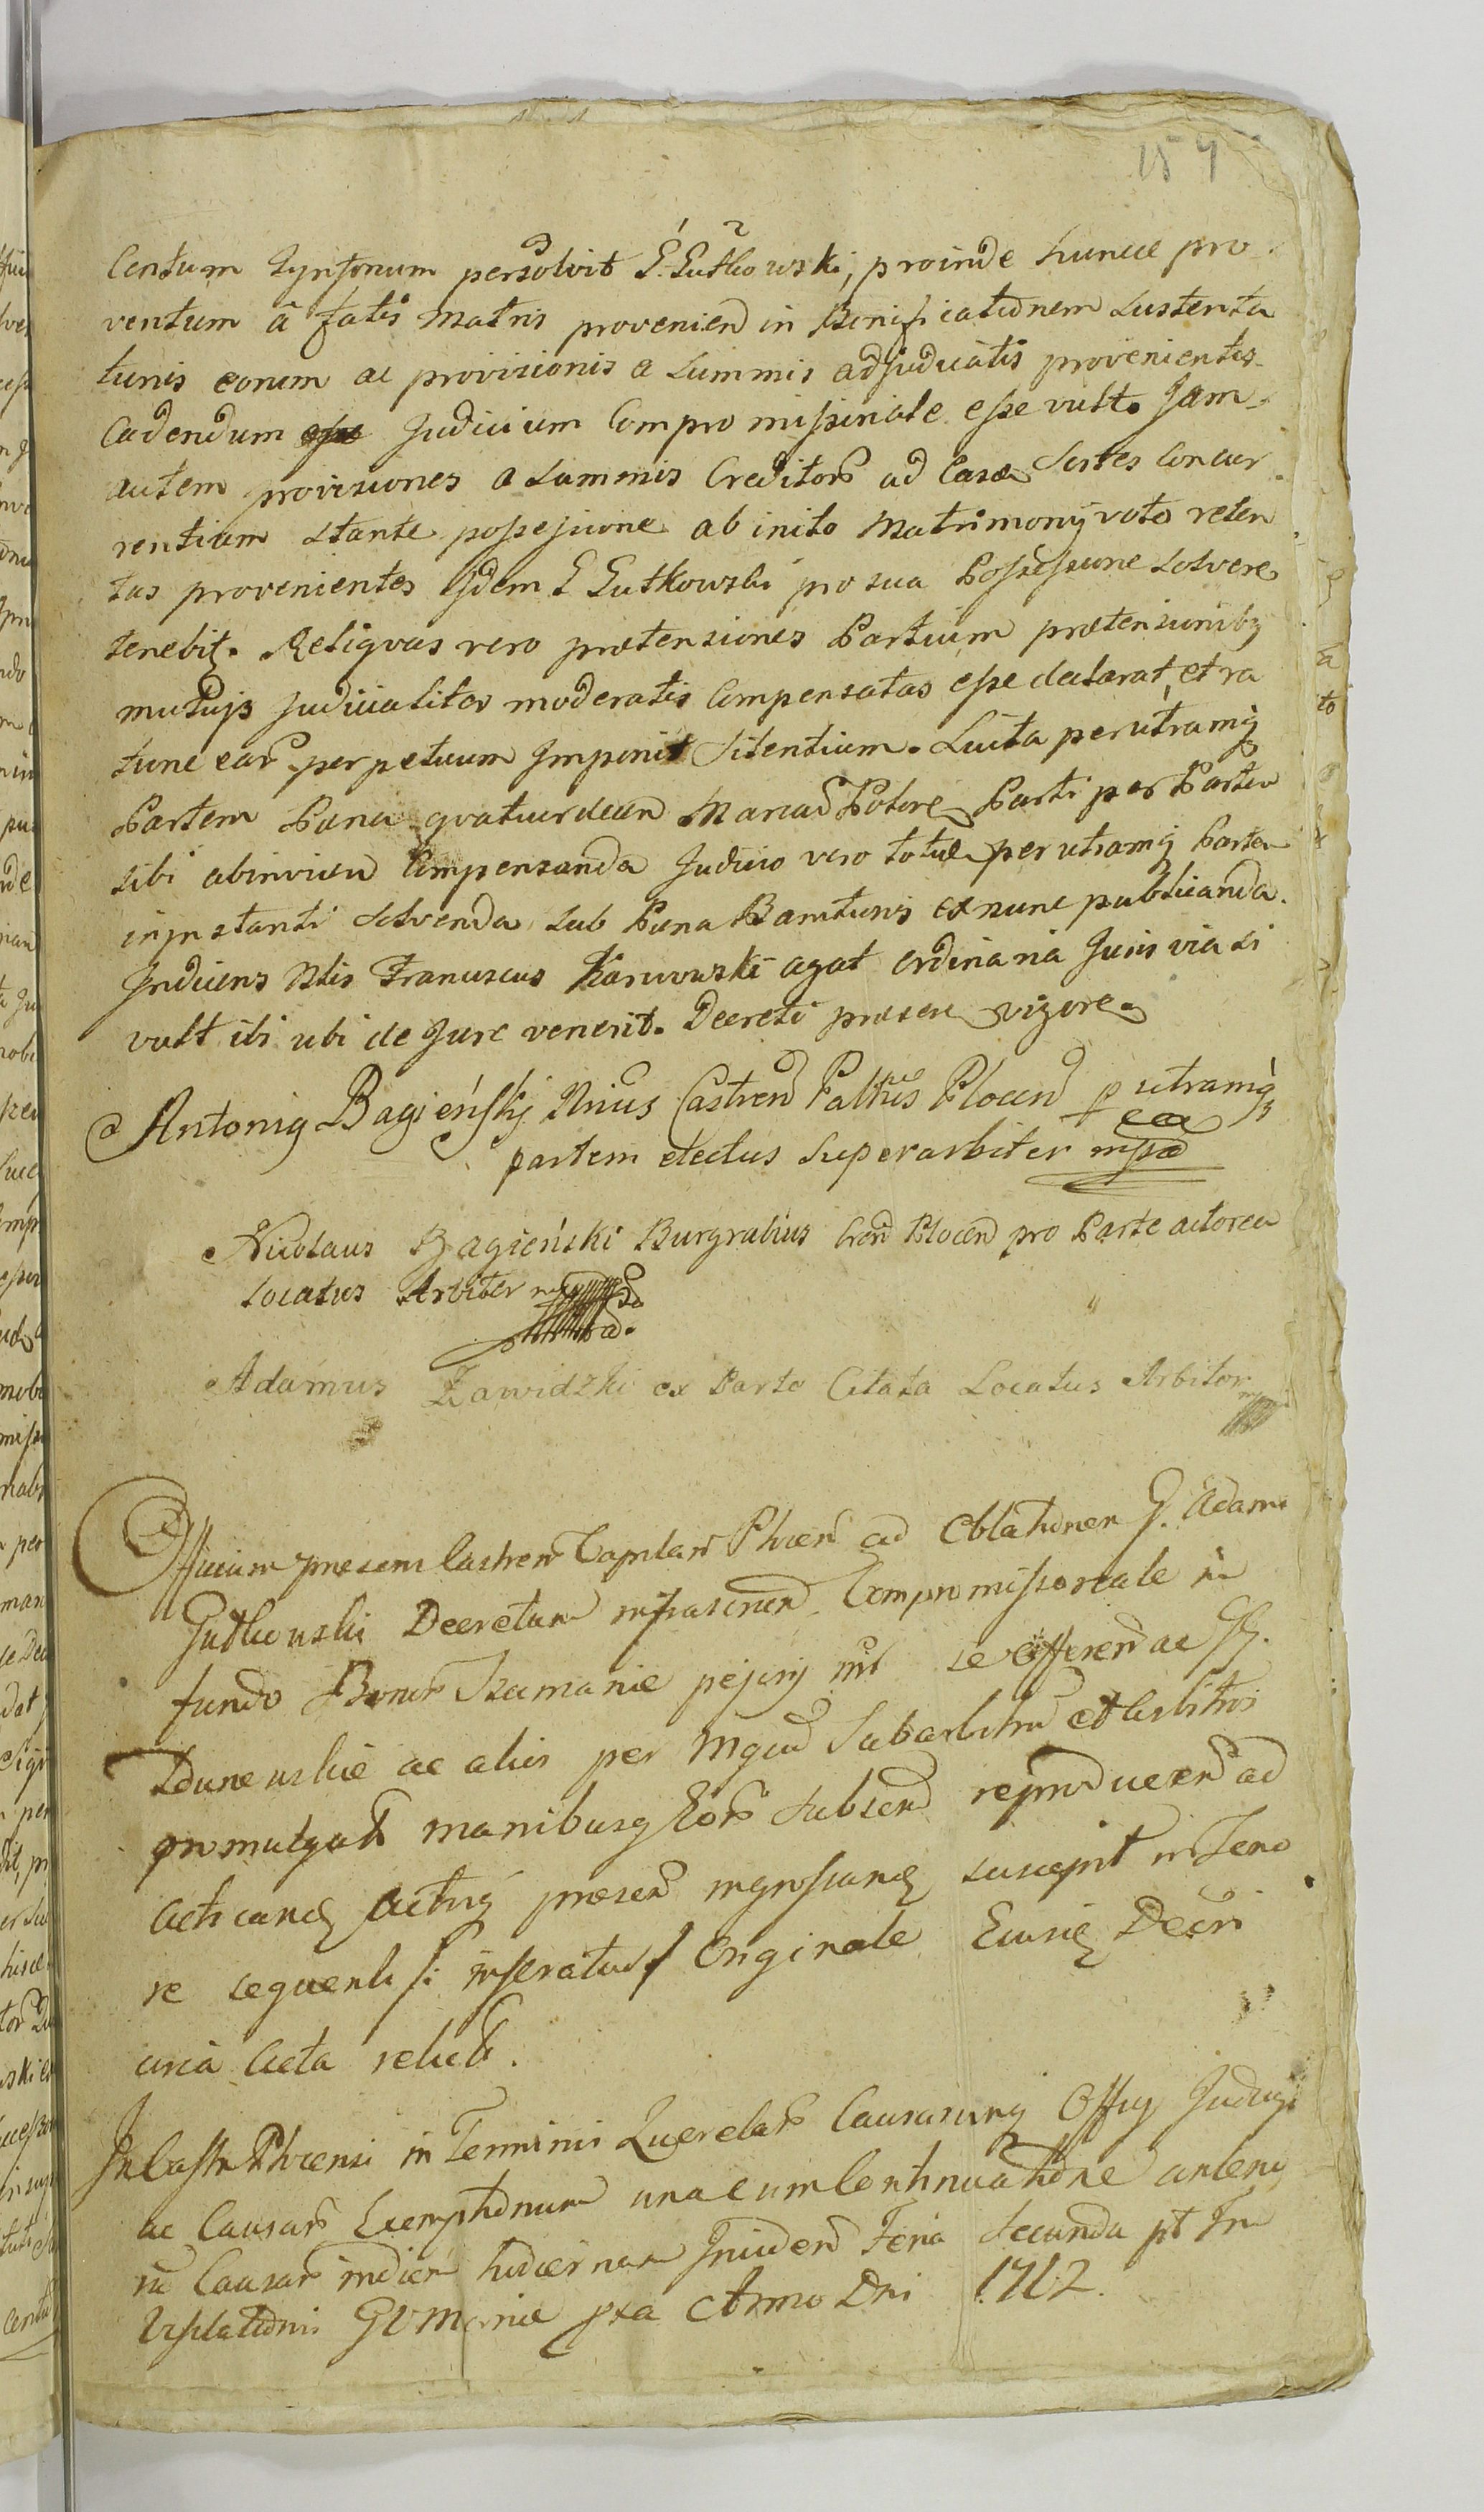 159
Centum Tynfonum persolvit G. Gutkowski, proinde hunce pro
ventum â fatis Matris provenien in Bonificationem Sustenta
tionis eorum ac provisionis a Summis adjudicatis provenientis
Cadendum Judicium Compromissionale esse vult. Jam
autem provisiones a Summis Creditorũ ad Casce Sortes Concur
rentium stante possessione ab inito Matrimonij voto reten
tas provenientes Isdem G Gutkowski pro sua Possessione Solvere
tenebit. Reliqvas vero prætensiones Partium prætensionibg
mutuijs judicialiter moderatis Compensatas esse declarat, et ra
tione ear perpetuum Imponit Silentium. Lucta per utramq
Partem Pana qvatuordecim Marcar Polore Parti per Partem
sibi abinvicem Compensanda Judicio vero totide per utramq Partem
in instanti Solvenda sub Pæna Bannitionis ex nunc publicanda.
Indicens Nblis Franciscus Karwowski agat ordinaria Juris via si
vult ibi ubi de Jure venerit. Decreti præsen vigore.
Antonig Bagieńskj Nrius Castren Pallnus Plocen p utramq
partem electus Superarbiter mpa
Nicolaus Bagieński Burgrabius Cren Plocen pro Parte actorea
Locatus Arbiter
Adamus Zawidzki ex Parte Citata Locatus Arbiter
Officium præsens Castren Capitan Plocen ad Oblationem G. Adami
Gutkowski Decretum infrascriptum Compromissoreale in
fundo Bonor Szamanie pejory int se Offeren ac GG.
Zdunewskie ac alios per Mgcu Subarbitru et Arbitros
promulgat manibusq Eor Subscri reproducen ad
acticandu Actisq præsen ingrossandu suscepit in Teno
re seqventi /: inseratur :/ Originale Eiusde Decri
circa Acta relict.
In Castro Plocensi in Terminis Qverelar Causarumq Officij Judicij
ac Causar Exemptionum una cum Continuatione anteri
ru Causar in diem hodiernam Inciden Feria Secunda pt Fm
Visitationis GV Mariæ pxa Anno Dni 1712.